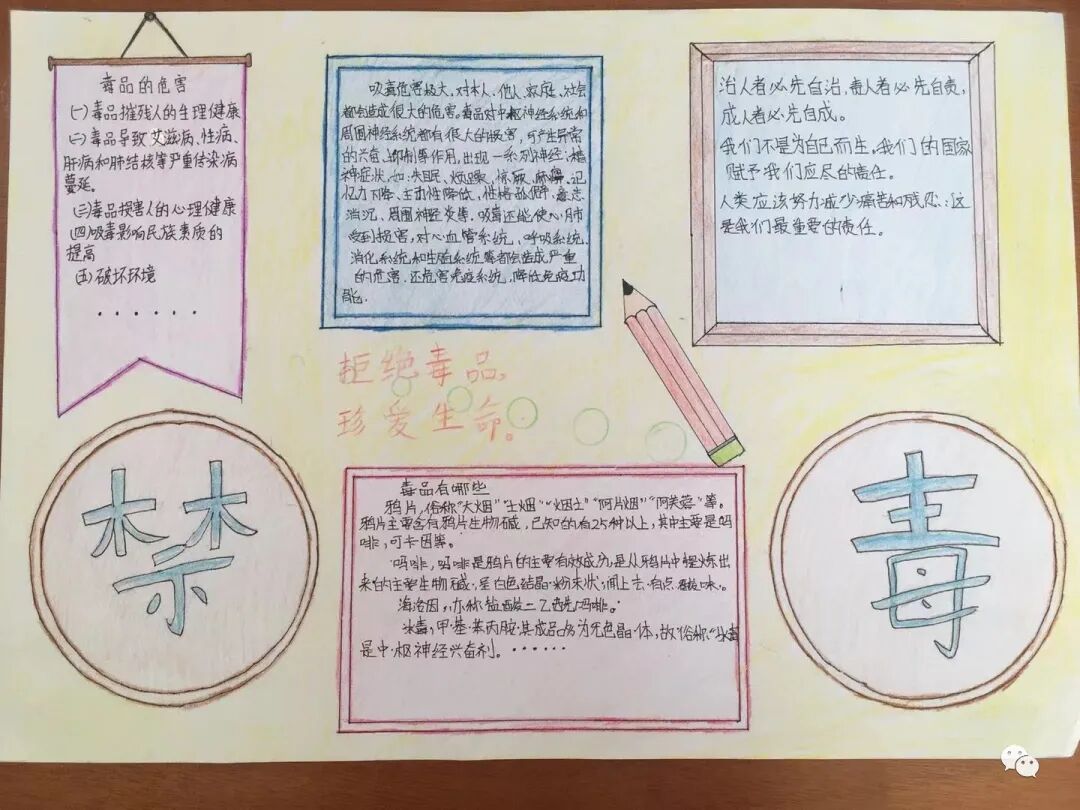 毒品的危害
(一)毒品摧残人的生理健康
(二)毒品导致艾滋病、性病、
肝病和肺结核等严重传染病
蔓延。
(三)毒品损害人的心理健康
(四)吸毒影响民族素质的
提高
(五)破坏环境
......
吸毒危害极大,对本人、他人、家庭、社会
都会造成很大的危害。毒品对中枢神经系统和
周围神经系统都有很大的损害,可产生异常
的兴奋、抑制等作用,出现一系列神经、精
神症状,如:失眠、烦躁、惊厥、麻痹、记
忆力下降、主动性降低,性格孤僻、意志
消沉、周围神经炎等.吸毒还能使心肺
受到损害,对心血管系统,呼吸系统、
消化系统和生殖系统等都会造成严重
的危害.还危害免疫系统,降低免疫功
能.
治人者必先自治,责人者必先自责,
成人者必先自成。
我们不是为自己而生,我们的国家
赋予我们应尽的责任。
人类应该努力减少痛苦和残忍:这
是我们最重要的责任。
拒绝毒品,
珍爱生命。
禁
毒品有哪些
鸦片,俗称"大烟""土烟""烟土""阿片烟""阿芙蓉"等。
鸦片主要含有鸦片生物碱,已知的有25种以上,其中主要是吗
啡,可卡因等。
吗啡,吗啡是鸦片的主要有效成分,是从鸦片中提炼出
来的主要生物碱,呈白色结晶粉末状,闻上去有点酸味.
海洛因,亦称盐酸二乙酰吗啡。
冰毒,甲·基·苯丙胺·其成品多为无色晶·体,故俗称"冰毒
是中·枢神经兴奋剂。······
毒